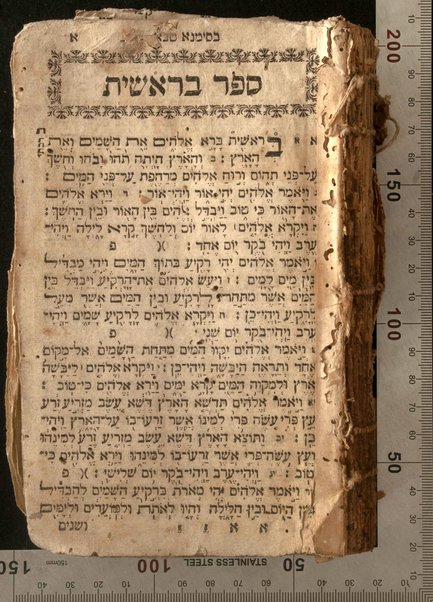 בסימנא טבא א
ספר בראשית
א א בראשית ברא אלהים את השמים ואת
הארץ : ב והארץ היתה תהו ובהו וחשך
על-פני תהום ורוח אלהים מרחפת על-פני המים :
ויאמר אלהים יהי אור ויהי-אור : ד וירא אלהים
את-האור כי טוב ויבדל אלהים בין האור ובין החשך :
ה ויקרא אלהים לאור יום ולחשך קרא לילה ויהי-
ערב ויהי בקר יום אחד : פ
ויאמר אלהים יהי רקיע בתוך המים ויהי מבדיל
בין מים למים : ויעש אלהים את-הרקיע ויבדל בין
המים אשר מתחת לרקיע ובין המים אשר מעל
לרקיע ויהי-כן : ח ויקרא אלהים לרקיע שמים ויהי-
ערב ויהי-בקר יום שני : פ
ויאמר אלהים יקוו המים מתחת השמים אל-מקום
אחד ותראה היבשה ויהי-כן : ויקרא אלהים ליבשה
ארץ ולמקוה המים קרא ימים וירא אלהים כי-טוב :
ויאמר אלהים תדשא הארץ דשא עשב מזריע זרע
עץ פרי עשה פרי למינו אשר זרעו-בו על-הארץ ויהי-
כן : יב ותוצא הארץ דשא עשב מזריע זרע למינהו
ועץ עשה-פרי אשר זרעו-בו למינהו וירא אלהים כי-
טוב : יג ויהי-ערב ויהי-בקר יום שלישי : פ
ויאמר אלהים יהי מארת ברקיע השמים להבדיל
בין היום ובין הלילה והיו לאתת ולמועדים ולימים
ושנים
200
150
100
50
150
100
50
150mm
STAINLESS STEEL